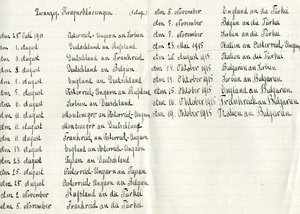 Kriegserklärungen
am 28. Juli 1914 Österreich-Ungarn an Serbien
am 1. August Deutschland an Rußland
am 3. August Deutschland an Frankreich
am August Deutschland an Belgien
am August England an Deutschland
am 5. August Österreich-Ungarn an Rußland
am 6. August Serbien an Deutschland
am August Montenegro an Österreich-Ungarn
am August Montenegro an Deutschland
am August Frankreich an Österreich-Ungarn
am August England an Österreich-Ungarn
am 23. August Japan an Deutschland
am August Österreich-Ungarn an Japan
am 28. August Österreich-Ungarn an Belgien
am 2. November Rußland an die Türkei
am 5. November Frankreich an die Türkei
am 5. November England an die Türkei
am 7. November Belgien an die Türkei
am November Serbien an die Türkei
am 23. Mai 1915 Italien an Österreich-Ungarn
am August 1915 Italien an die Türkei
am 14. Oktober 1915 Bulgarien an Serbien
am Oktober 1915 Serbien an Bulgarien
am 15. Oktober 1915 England an Bulgarien
am 16. Oktober 1915 Frankreich an Bulgarien
am 19. Oktober 1915 Italien an Bulgarien